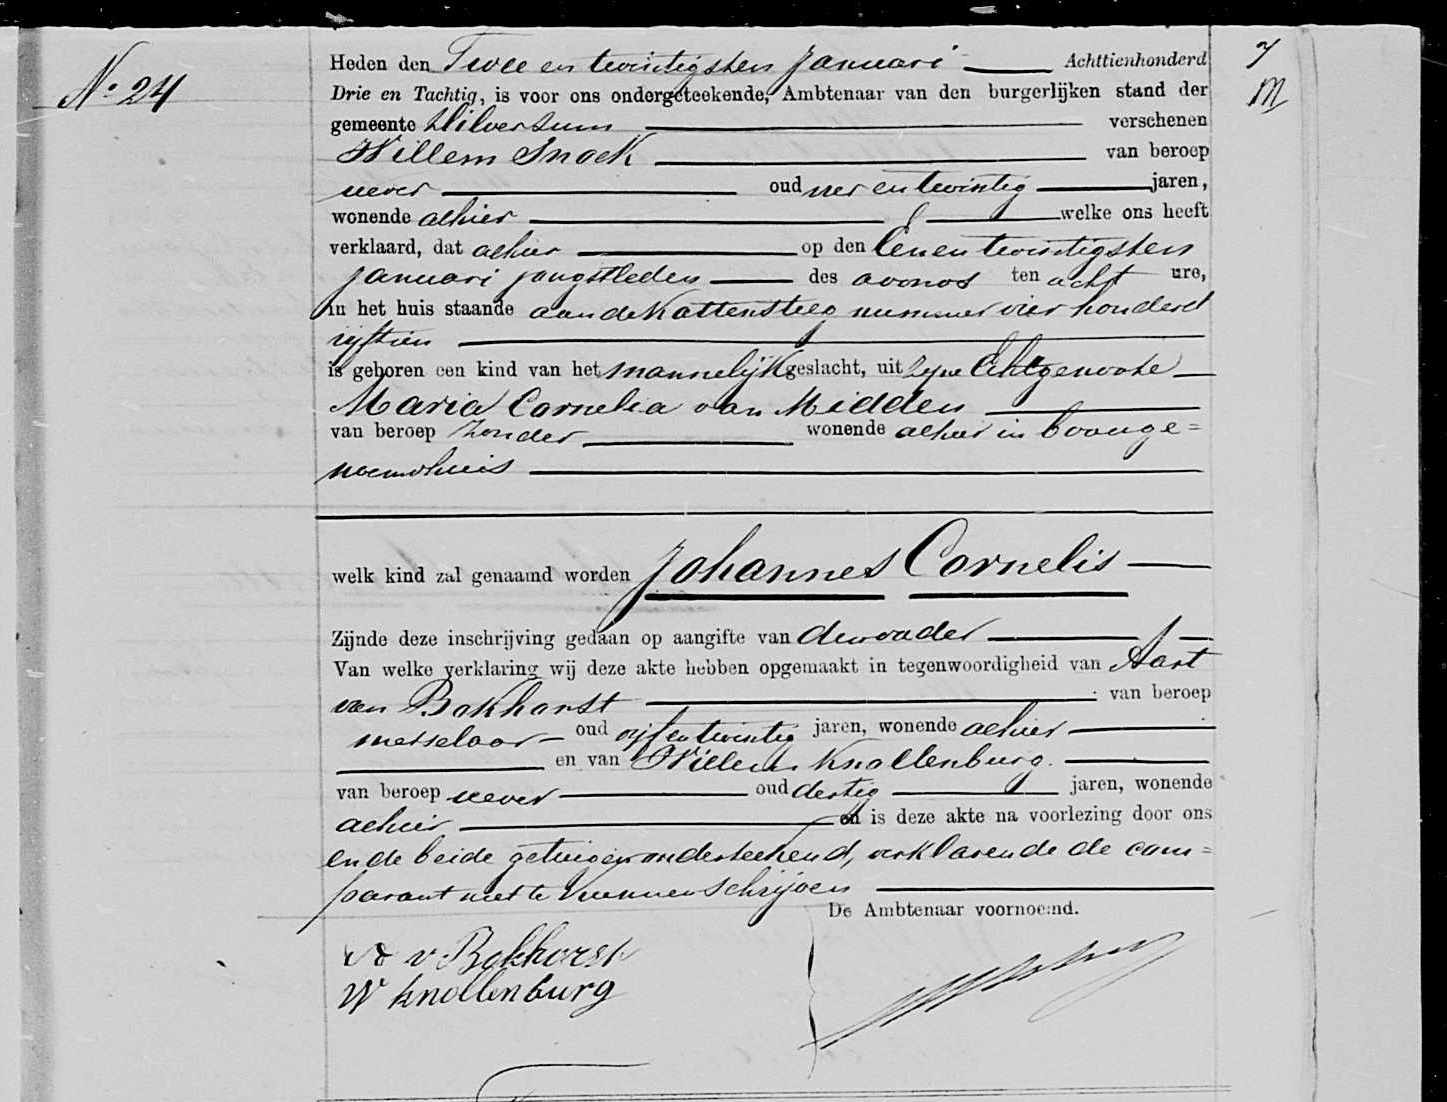 No 24
Heden den Twee en twintigsten Januari Achttienhonderd
Drie en Tachtig, is voor ons ondergeteekende, Ambtenaar van den burgerlijken stand der
gemeente Hilversum verschenen
Willem Snoek van beroep
wever oud vier en twintig jaren,
wonende alhier welke ons heeft
verklaard, dat alhier op den Eenen twintigsten
Januari jongstleden des avonds ten acht ure,
in het huis staande aan de Kattensteeg nummer vier honderd
vijftien
is geboren een kind van het mannelijk geslacht, uit zijne Echtgenoote
Maria Cornelia van Midden
van beroep zonder wonende alhier in bovenge=
noemd huis
welk kind zal genaamd worden Johannes Cornelis
Zijnde deze inschrijving gedaan op aangifte van den vader
Van welke verklaring wij deze akte hebben opgemaakt in tegenwoordigheid van Aart
van Bokhorst van beroep
metselaar oud vijf en twintig jaren, wonende alhier
en van Willem Knollenburg.
van beroep wever oud dertig jaren, wonende
alhier en is deze akte na voorlezing door ons
en de beide getuigen onderteekend, verklarende de com=
parant niet te kunnen schrijven
De Ambtenaar voornoemd.
A v. Bokhorst
W Knollenburg